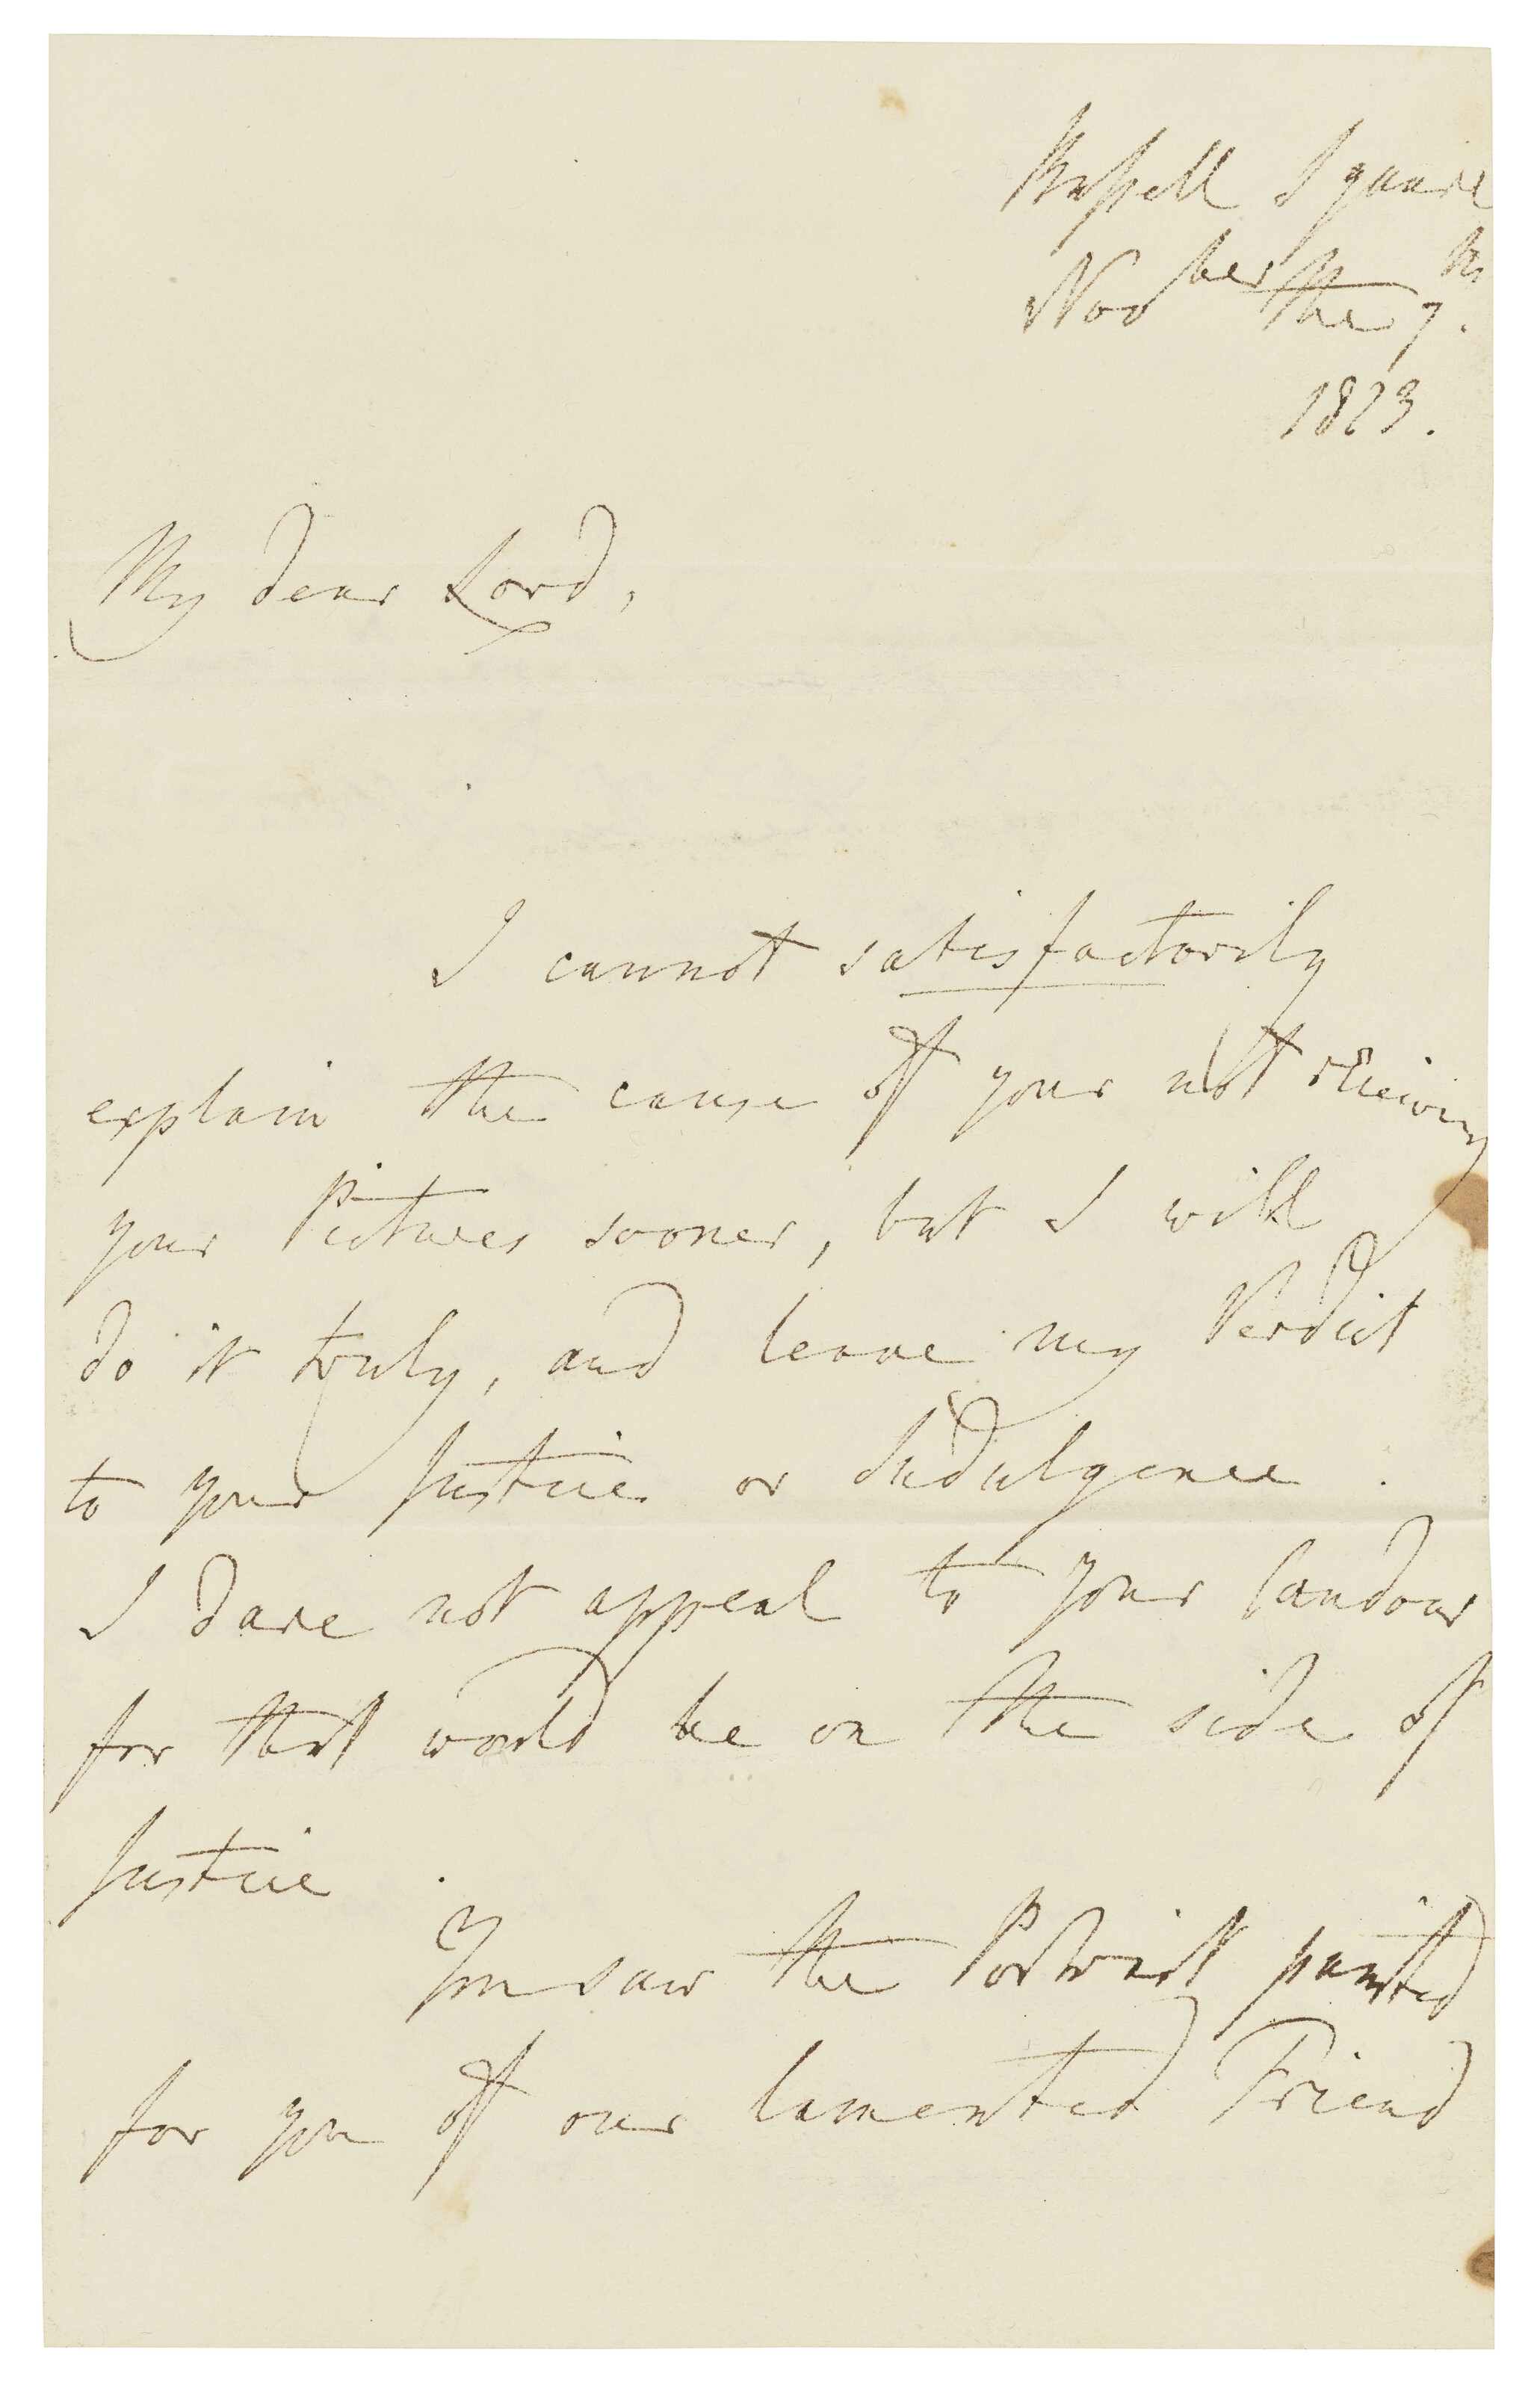 Russell Square
Novber the 7th.
1823.
My dear Lord,
I cannot satisfactorily
explain the cause of your not recieving
your Pictures sooner, but I will
do it truly, and leave my Verdict
to your Justice or Indulgence.
I dare not appeal to your Candour
for that would be on the side of
Justice.
You saw the Portrait painted
for you of our lamented Friend